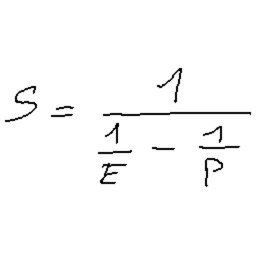 S = 1 / (1/E - 1/P)